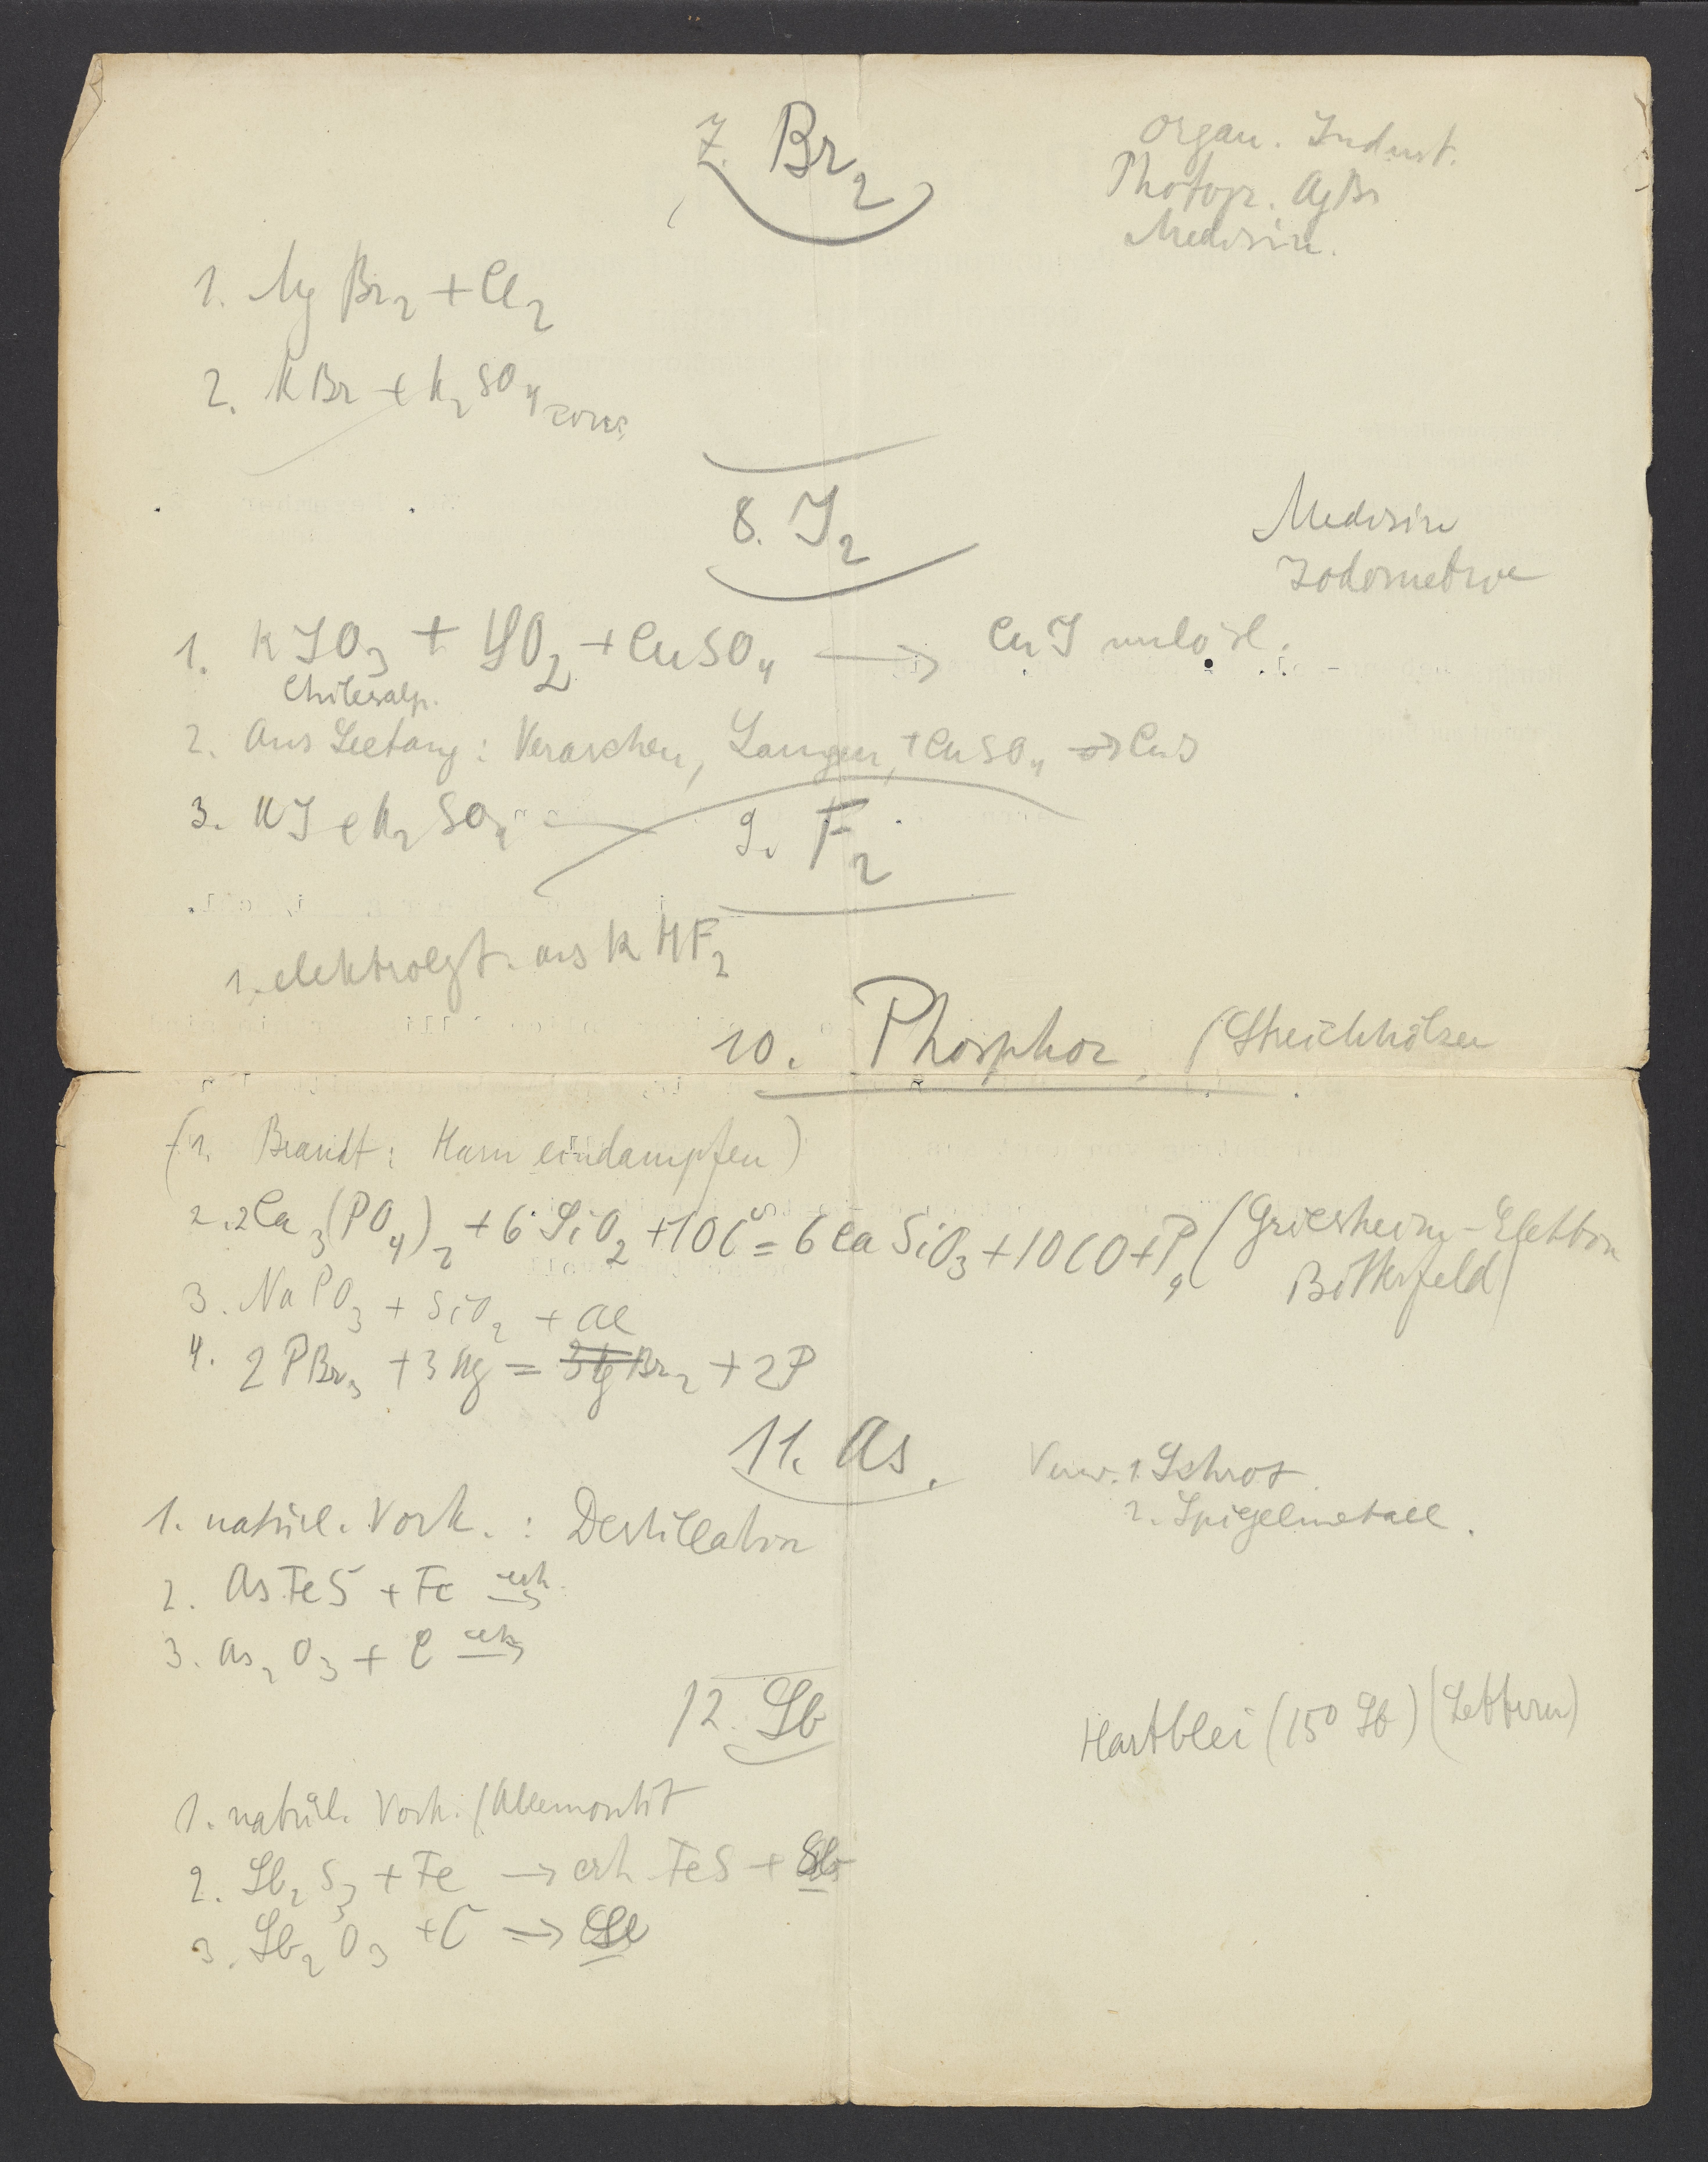 7. Br2
Organ. Indust.
Photogr. AgBr
Medizin.
1. MgBr2 + Cl2
2. KBr + H2SO4 conc.
8. J2
Medizin
Jodometrie
1. KJO3 + SO2 + CuSO4 → CuJ unlösl.
Chilesalp.
2. Aus Seetang: Veraschen, Laugen, + CuSO4 → CuJ
3. KJ + H2SO4
9. F2
1. elektrolyt. aus KHF2
10. Phosphor (Streichhölzer
(1. Brandt: Harn eindampfen)
2. 2Ca3(PO4)2 + 6SiO2 + 10C = 6CaSiO3 + 10CO + P4 (Griesheim-Elektron
Bitterfeld)
3. NaPO3 + SiO2 + Al
4. 2PBr3 + 3Hg = 3HgBr2 + 2P
11. As.
Verw. 1. Schrot
2. Spiegelmetall.
1. natürl. Vork. : Destillation
2. AsFeS + Fe erh. →
3. As2O3 + C erh. →
12. Sb
Hartblei (15% Sb) (Lettern)
1. natürl. Vork. (Allemontit
2. Sb2S3 + Fe → erh FeS + Sb
3. Sb2O3 + C → Sb